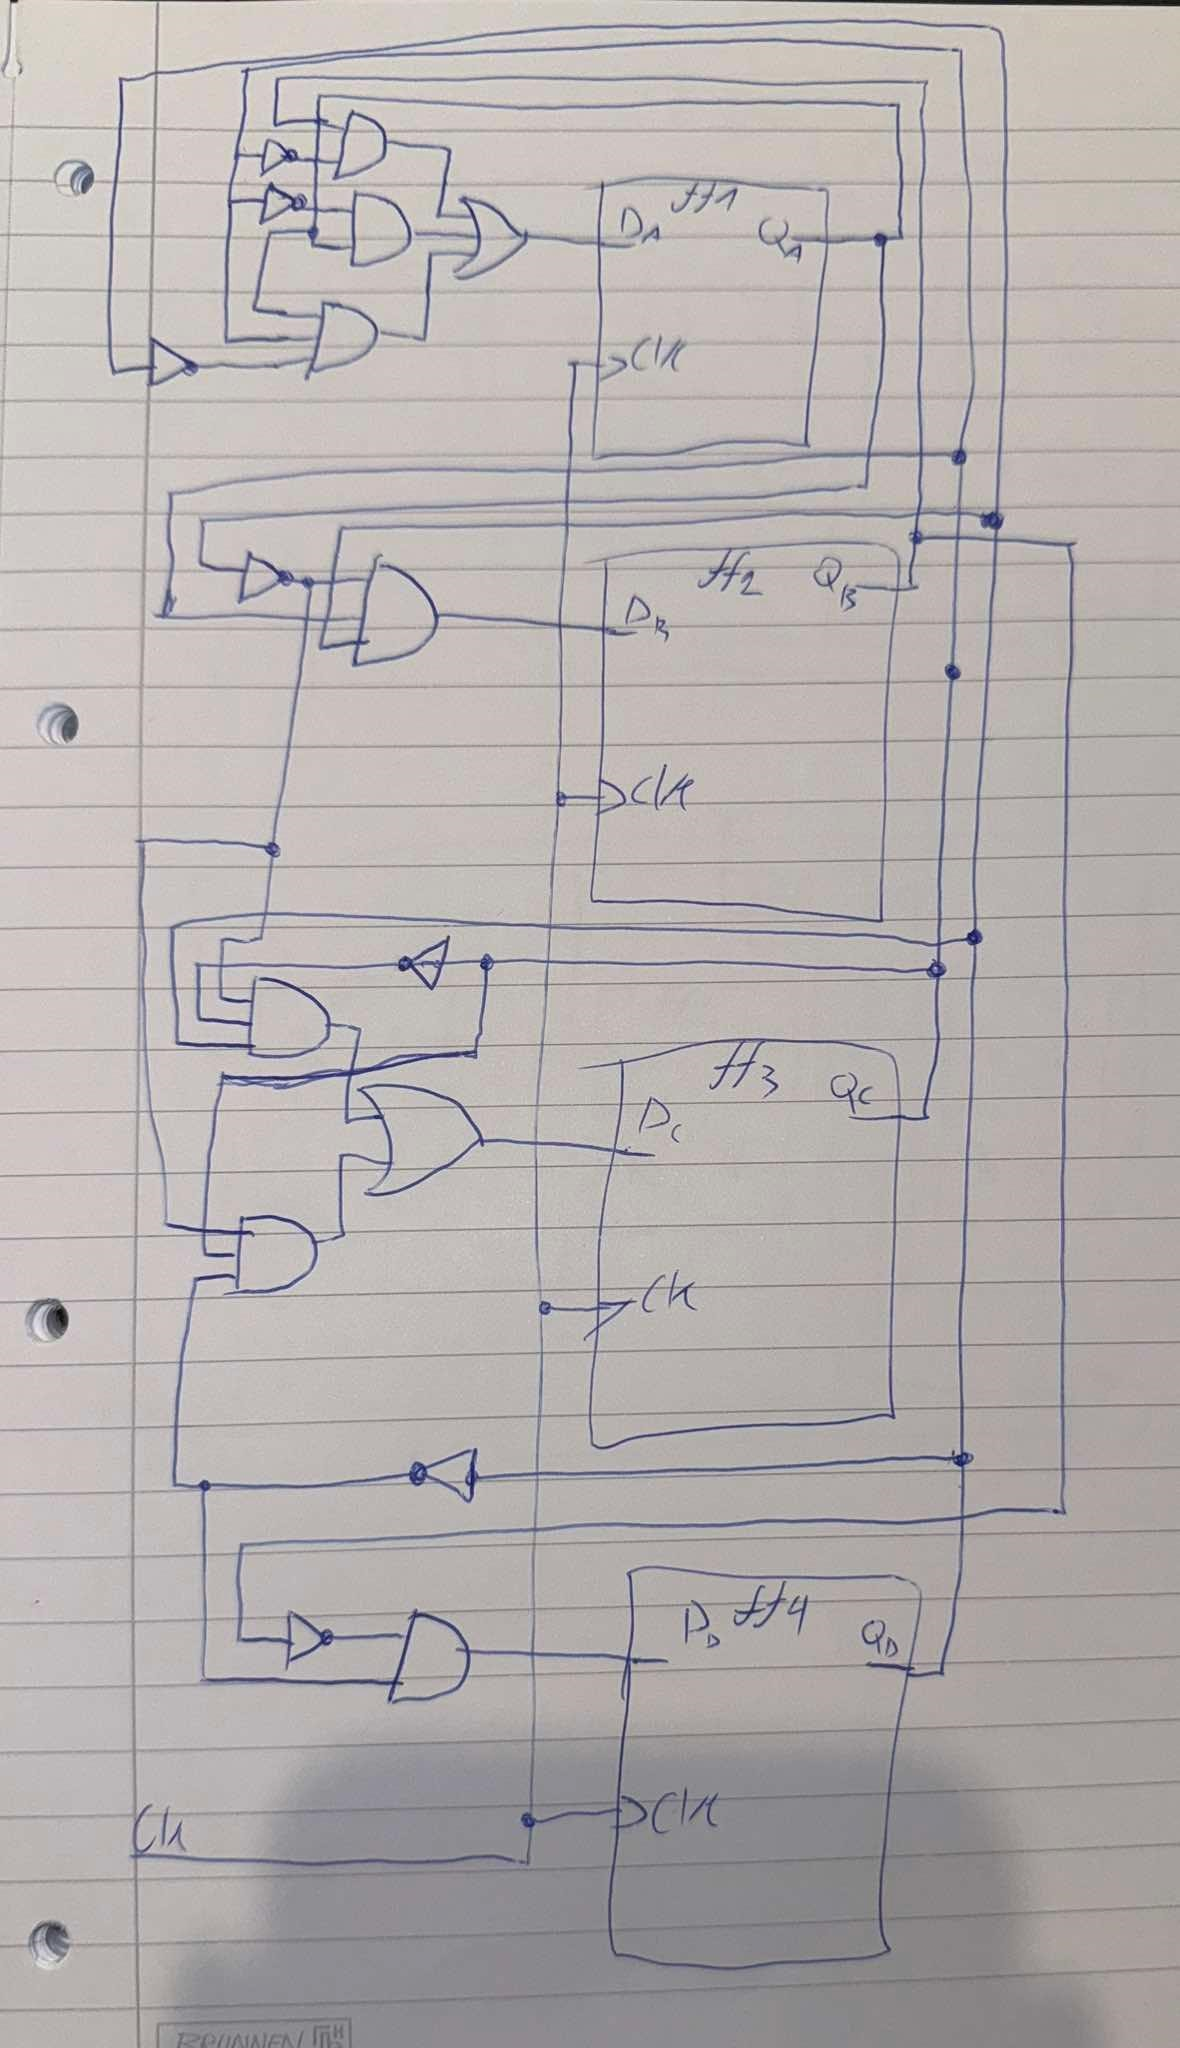 ff1
DA QA
Clk
ff2 QB
DB
Clk
ff3 QC
DC
Clk
DD ff4 QD
Clk
Clk
BRUNNEN